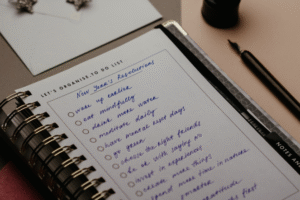 LET'S ORGANISE TO DO LIST
New Year's Resolutions
wake up earlier
eat mindfully
drink more water
meditate daily
have mental reset days
go green
choose the right friends
be ok with saying no
invest in experiences
create more things
spend more time in nature
first